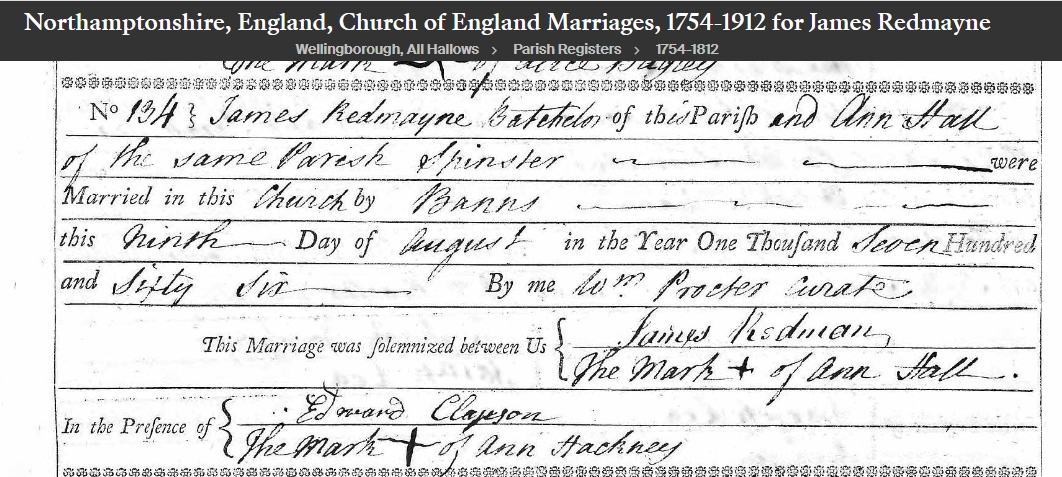 Northamptonshire, England, Church of England Marriages, 1754-1912 for James Redmayne
Wellingborough, All Hallows > Parish Registers > 1754-1812
The Mark of Alice Bayley
No 134 } James Redmayne Batchelor of this Pariſh and Ann Hall
of the same Parish Spinster were
Married in this Church by Banns
this Ninth Day of August in the Year One Thouſand Seven Hundred
and Sixty Six By me Wm Procter Curate
This Marriage was ſolemnized between Us { James Redman
The Mark + of Ann Hall.
In the Preſence of { Edward Clayson
The Mark + of Ann Hackney